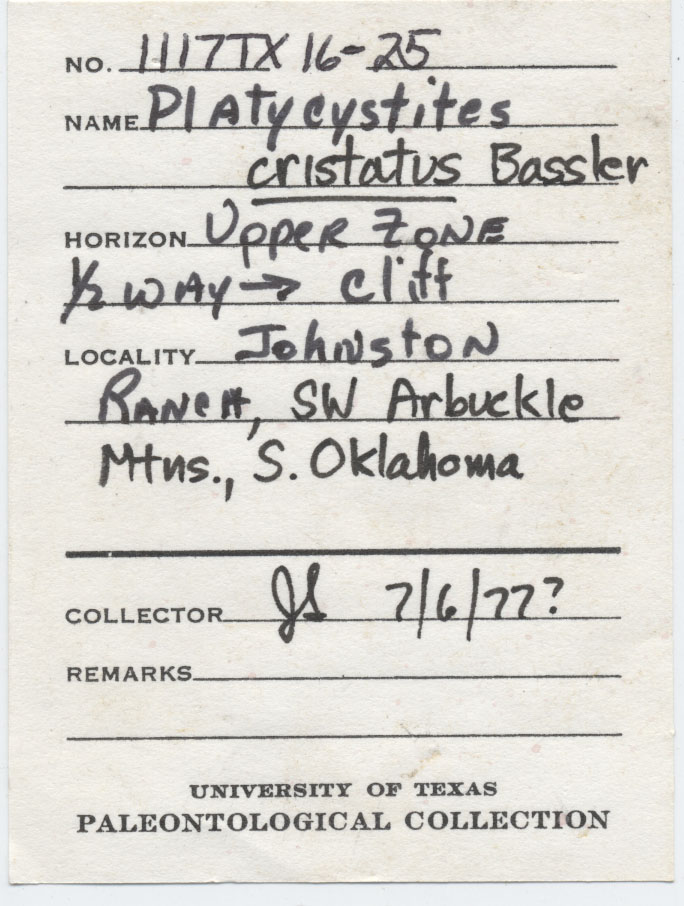 NO. 1117TX16-25
NAME Platycystites
cristatus Bassler
HORIZON Upper Zone
1/2 way → cliff
LOCALITY Johnston
Ranch, SW Arbuckle
Mtns., S. Oklahoma
COLLECTOR JS 7/6/77?
REMARKS
UNIVERSITY OF TEXAS
PALEONTOLOGICAL COLLECTION